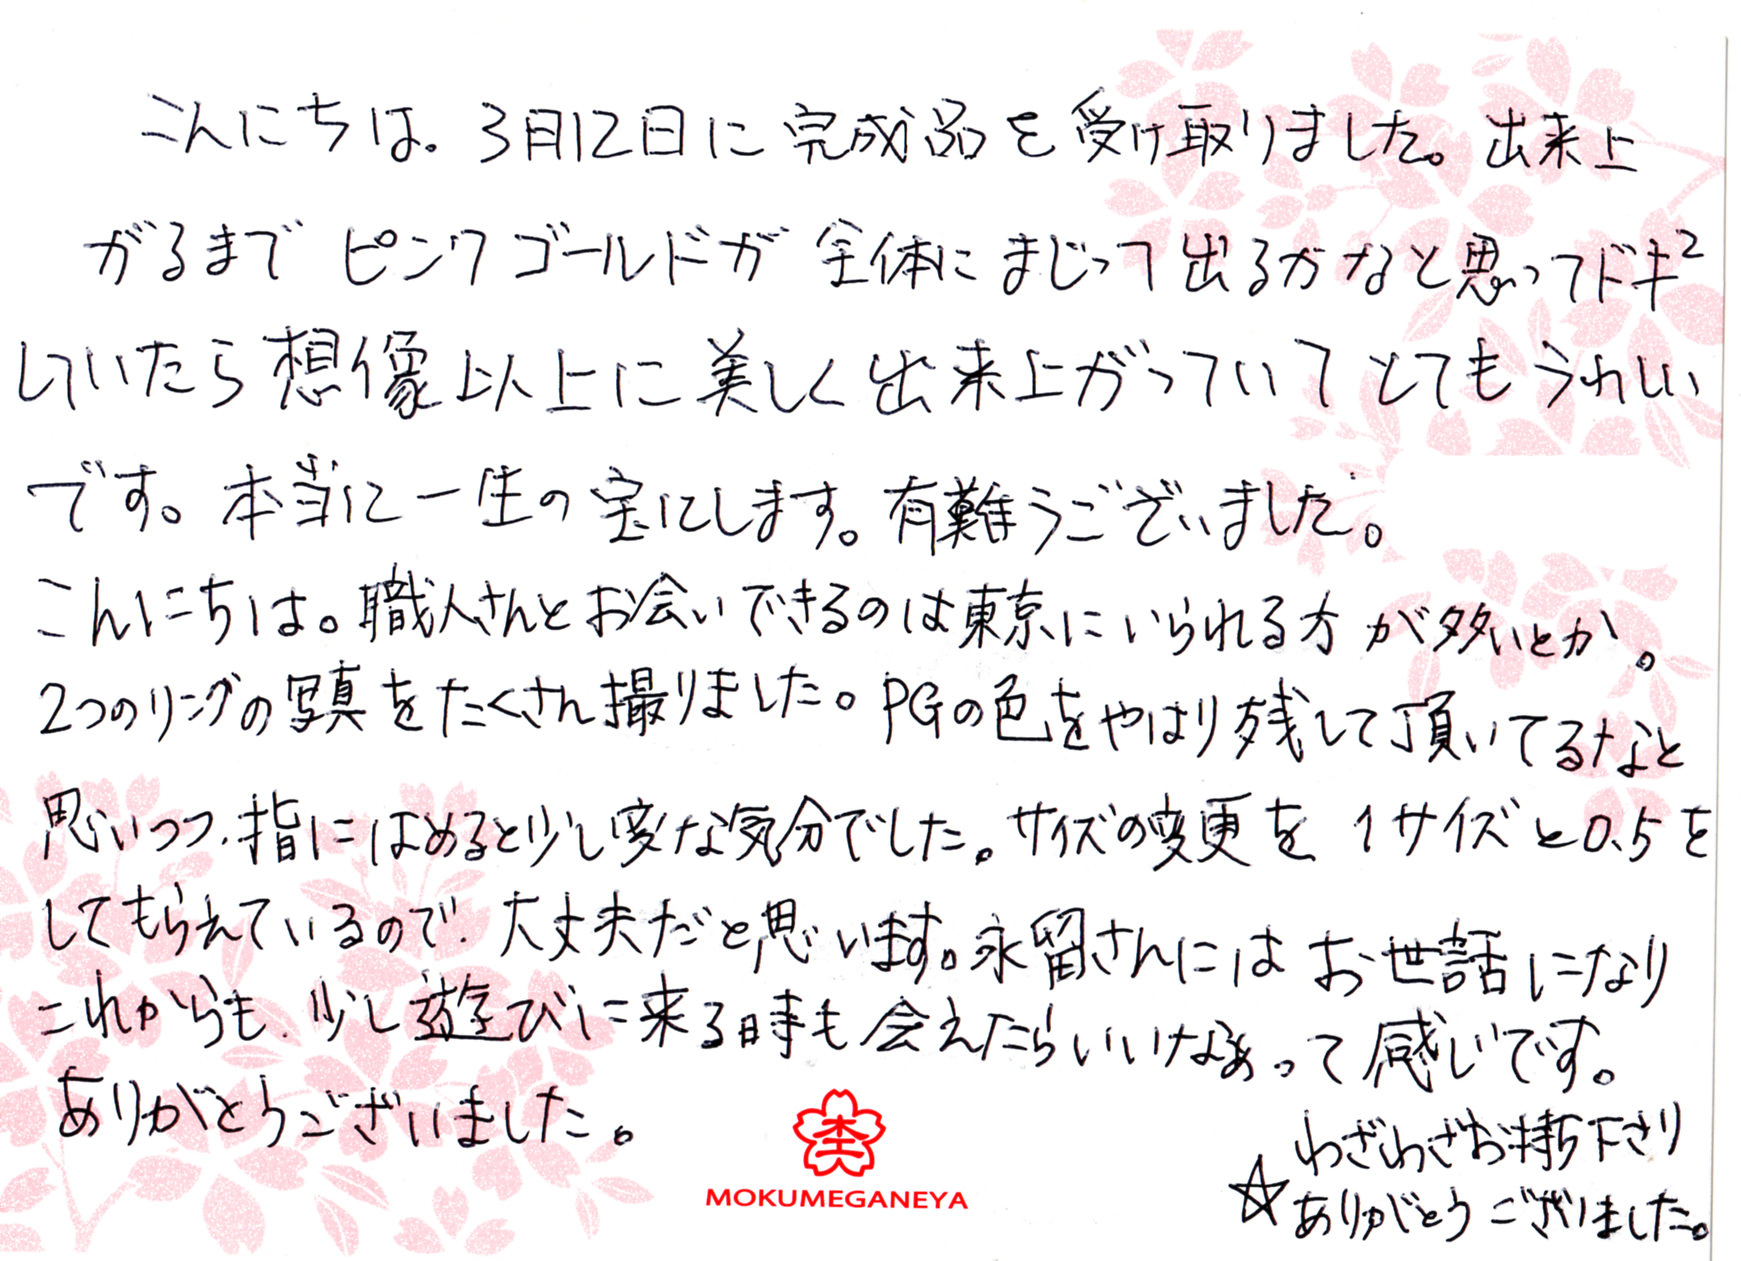 こんにちは。3月12日に完成品を受け取りました。出来上
がるまで ピンクゴールドが 全体にまじって出るかなと思ってドキ²
していたら想像以上に美しく出来上がっていてとてもうれしい
です。本当に一生の宝にします。有難うございました。
こんにちは。職人さんとお会いできるのは東京にいられる方が多いとか。
2つのリングの写真をたくさん撮りました。PGの色をやはり残して頂いてるなと
思いつつ、指にはめると少し変な気分でした。サイズの変更を1サイズと0.5を
してもらえているので、大丈夫だと思います。永留さんにはお世話になり
これからも、少し遊びに来る時も会えたらいいなあって感じです。
ありがとうございました。
杢
MOKUMEGANEYA
わざわざお持ち下さり
☆ありがとうございました。